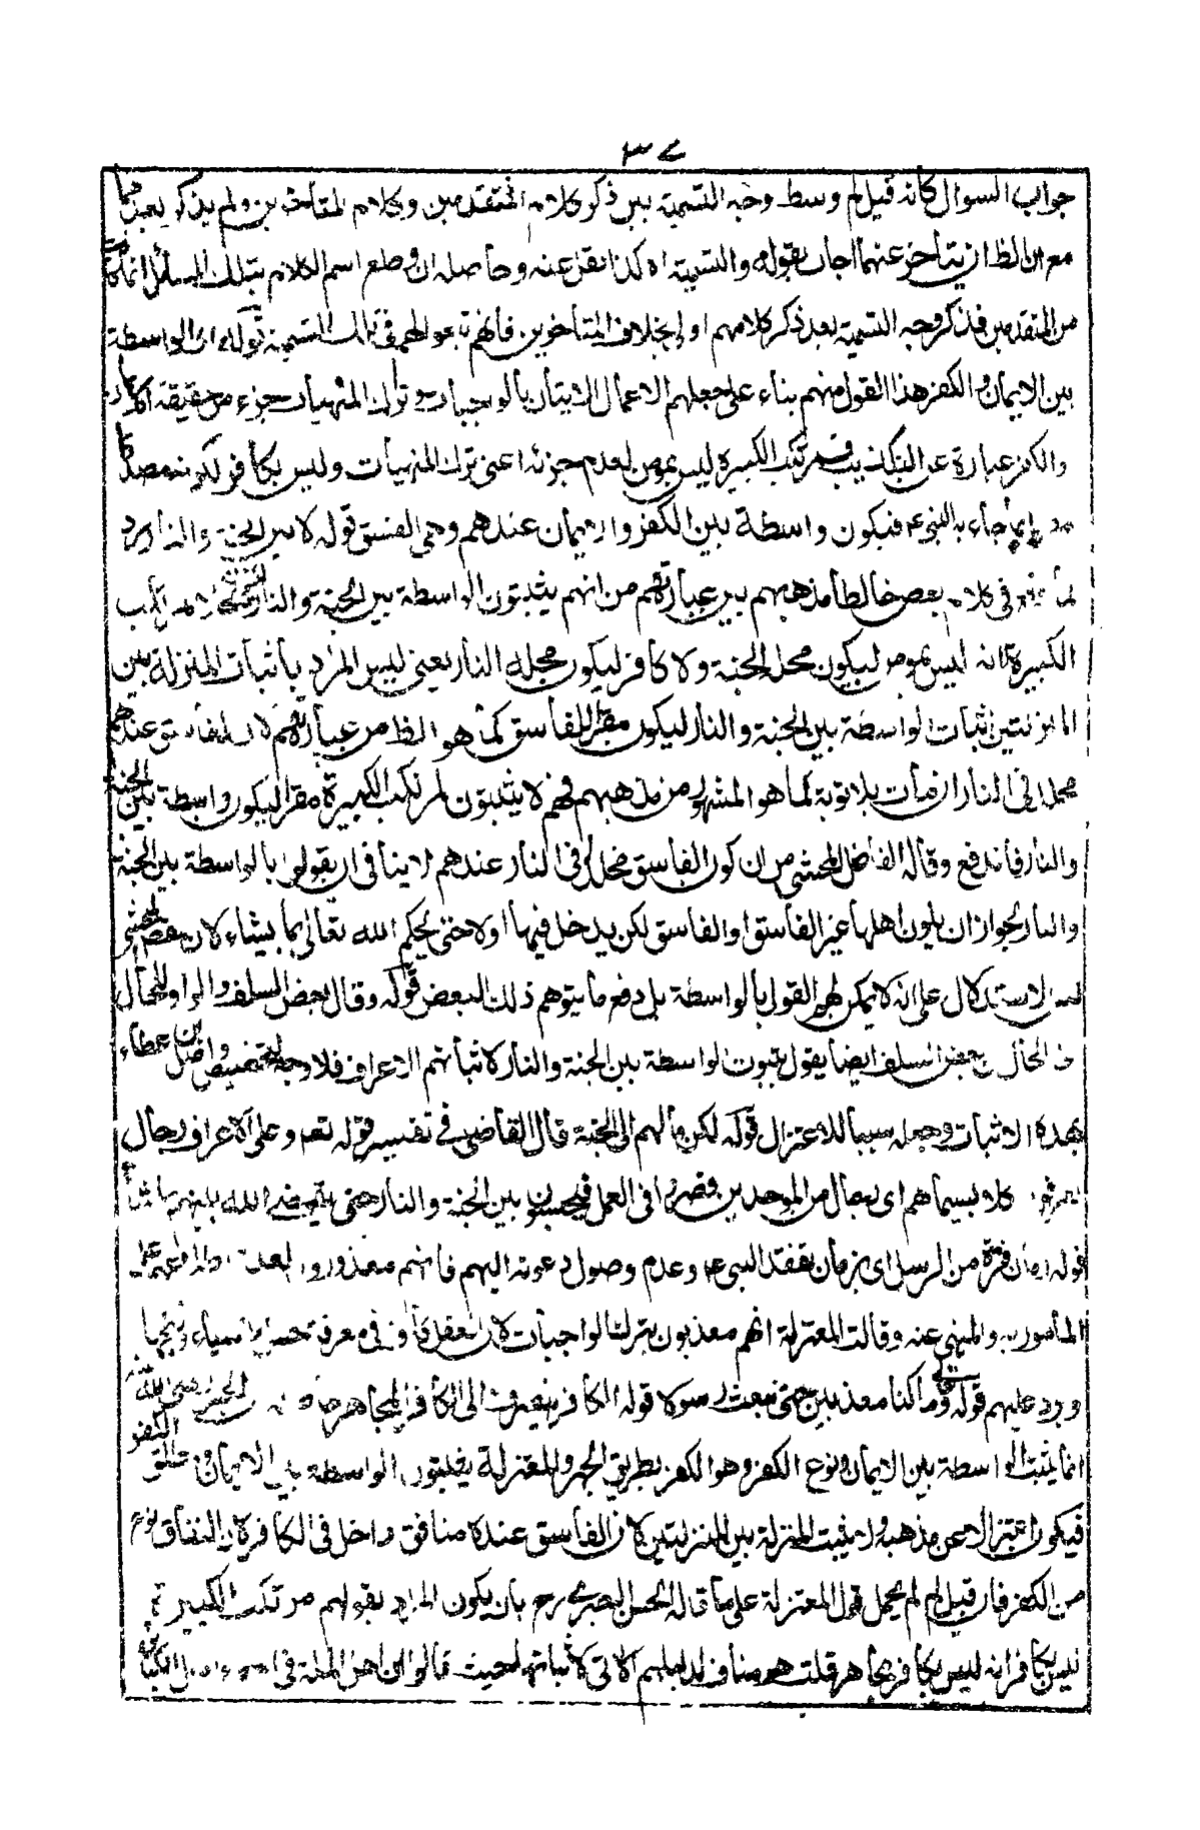 ٣٧
جواب السوال كانه قيل لم وسط وجه التسمية بين ذكر كلام المتقدمين وكلام المتأخرين ولم يذكر بعدهما
مع ان الظ ان يتأخر عنهما اجاب بقوله والتسمية اه كذا نقل عنه وحاصله ان وضع اسم الكلام بتلك المسائل انما كان
من المتقدمين فذكر وجه التسمية بعد ذكر كلامهم اولى بخلاف المتأخرين فانهم تبعوا لهم في تلك التسمية قوله اى الواسطة
بين الايمان والكفر هذا القول منهم بناء على جعلهم الاعمال الاتيان بالواجبات وترك المنهيات جزء من حقيقة الايمان
والكفر عبارة عن التكذيب فمرتكب الكبيرة ليس بمومن لعدم جزئه اعنى ترك المنهيات وليس بكافر لكونه مصدقا
بما جاء به النبى عم فيكون واسطة بين الكفر والايمان عندهم وهى الفسق قوله لا بين الجنة والنار رد
لما وقع فى كلام بعض خالطا مذهبهم بين عباراتهم من انهم يثبتون الواسطة بين الجنة والنار لمرتكب
الكبيرة لانه ليس بمومن ليكون محله الجنة ولا كافر ليكون محله النار يعنى ليس المراد باثبات المنزلة بين
المنزلتين اثبات الواسطة بين الجنة والنار ليكون مقرا للفاسق كما هو الظ من عباراتهم لان الفاسق عندهم
مخلد فى النار ان مات بلا توبة كما هو المشهور من مذهبهم فهم لا يثبتون لمرتكب الكبيرة مقرا ليكون واسطة بين الجنة
والنار فاندفع وقاله الفاضل المحشى من ان كون الفاسق مخلدا فى النار عندهم لا ينافى ان يقولوا بالواسطة بين الجنة
والنار لجواز ان يكون اهلها غير الفاسق او الفاسق لكن يدخل فيها اولا حتى يحكم الله تعالى بما يشاء لان بعض المحشى
ليس الاستدلال على انه لا يمكن لهم القول بالواسطة بل دفع ما يتوهم ذلك البعض قوله وقال بعض السلف والواو للحال
الحال بعض السلف ايضا يقول بثبوت الواسطة بين الجنة والنار لاثباتهم الاعراف فلا وجه لتخصيص واصل بن عطاء
بهذه الاثبات وجعله سببا للاعتزال قوله لكن مآلهم الى الجنة قال القاضى فى تفسير قوله تعم وعلى الاعراف رجال
يعرفون كلا بسيماهم اى رجال من الموحدين قصروا فى العمل فيحبسون بين الجنة والنار حتى يقضى الله بينهم ما شاء
قوله زمان فترة من الرسل اى بزمان فقد النبى عم وعدم وصول دعوته اليهم فانهم معذورون لعدم
المأمور به والمنهى عنه وقالت المعتزلة انهم معذبون بترك الواجبات لان العقل كاف فى معرفة حسن الاشياء وقبحها
ورد عليهم قوله تعالى وما كنا معذبين حتى نبعث رسولا قوله الكافر ينصرف الى الكافر المجاهر الحسن رضى الله عنه
انما يثبت الواسطة بين الايمان ونوع الكفر وهو الكفر بطريق الجهر والمعتزلة يثبتون الواسطة بين الايمان ومطلق الكفر
فيكون اعتزالا عن مذهبه ولا يثبت المنزلة بين المنزلتين لان الفاسق عنده منافق داخل فى الكافر لان النفاق نوع
من الكفر فان قيل لم لم يحمل قول المعتزلة على ما قاله الحسن البصرى رح بان يكون المراد بقولهم مرتكب الكبيرة
ليس بكافر انه ليس بكافر مجاهر قلت هو مناف لدليلهم الاتى لاثباتها حيث قالوا ان اهل الملة فى